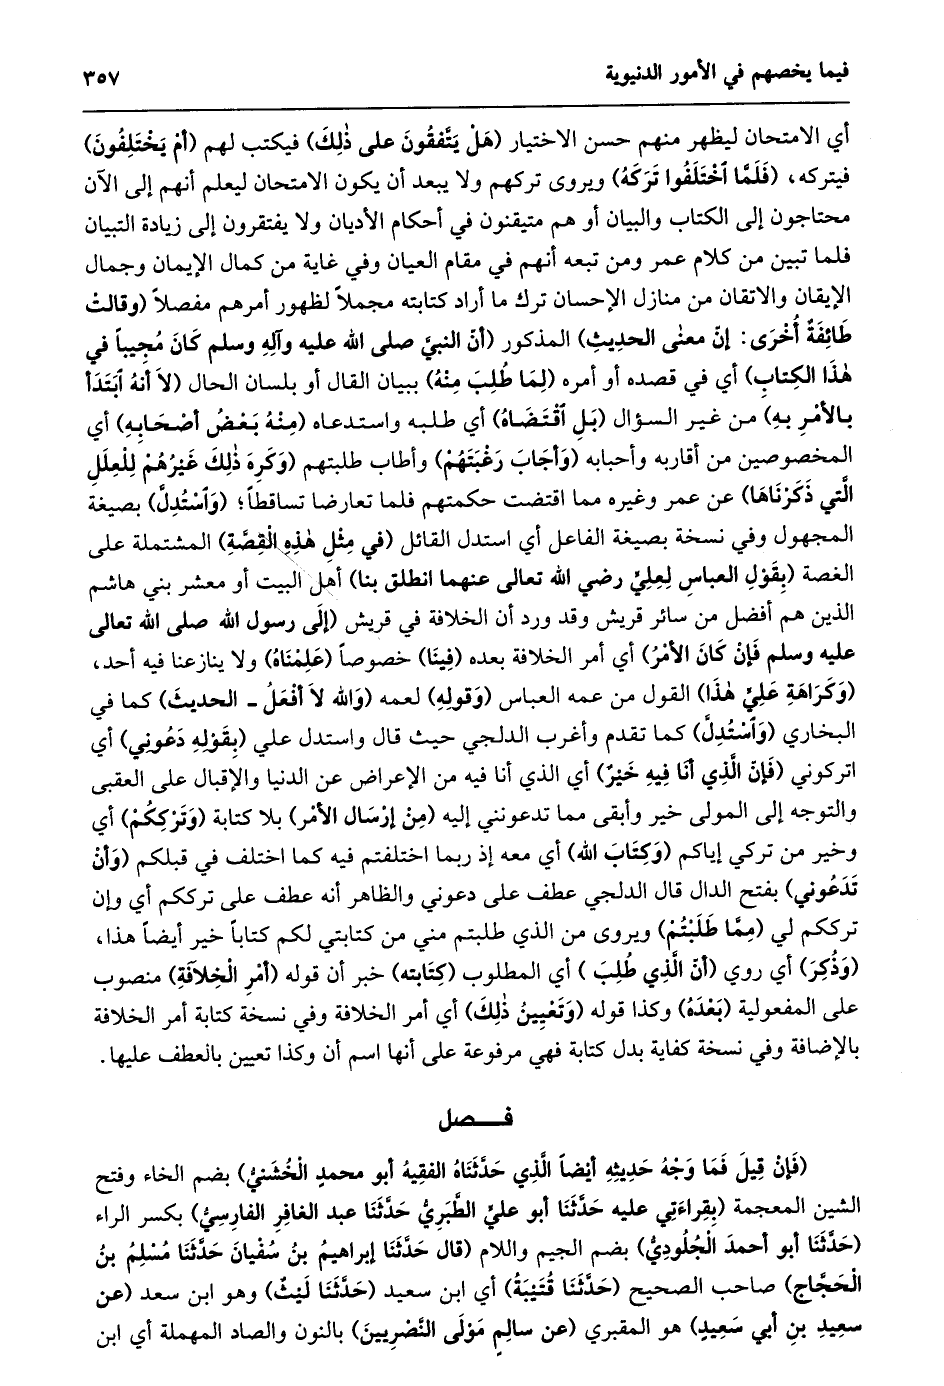 فيما يخصهم في الأمور الدنيوية ٣٥٧
أي الامتحان ليظهر منهم حسن الاختيار (هَلْ يَتَّفِقُونَ على ذٰلِكَ) فيكتب لهم (أمْ يَخْتَلِفُونَ)
فيتركه، (فَلَمَّا ٱخْتَلَفُوا تَرَكَهُ) ويروى تركهم ولا يبعد أن يكون الامتحان ليعلم أنهم إلى الآن
محتاجون إلى الكتاب والبيان أو هم متيقنون في أحكام الأديان ولا يفتقرون إلى زيادة التبيان
فلما تبين من كلام عمر ومن تبعه أنهم في مقام العيان وفي غاية من كمال الإيمان وجمال
الإيقان والاتقان من منازل الإحسان ترك ما أراد كتابته مجملاً لظهور أمرهم مفصلاً (وقالتْ
طَائِفَةٌ أُخْرَى: إنّ معنٰى الحديثِ) المذكور (أنّ النبيَّ صلى الله عليه وآلهِ وسلم كَانَ مُجِيباً في
هٰذَا الكِتابِ) أي في قصده أو أمره (لِمَا طُلِبَ مِنْهُ) ببيان القال أو بلسان الحال (لاَ أنهُ ٱبْتَدَأ
بالأمْرِ بهِ) من غير السؤال (بَلِ ٱقْتَضَاهُ) أي طلبه واستدعاه (مِنْهُ بَعْضُ أصْحَابِهِ) أي
المخصوصين من أقاربه وأحبابه (وَأجَابَ رَغْبَتَهُمْ) وأطاب طلبتهم (وَكَرِهَ ذٰلِكَ غَيْرُهُمْ لِلْعِلَلِ
الَّتي ذَكَرْنَاهَا) عن عمر وغيره مما اقتضت حكمتهم فلما تعارضا تساقطاً؛ (وَٱسْتُدِلَّ) بصيغة
المجهول وفي نسخة بصيغة الفاعل أي استدل القائل (في مِثْلِ هٰذِهِ الْقِصَّةِ) المشتملة على
الغصة (بِقَوْلِ العباسِ لِعِليّ رضي الله تعالى عنهما انطلق بنا) أهل البيت أو معشر بني هاشم
الذين هم أفضل من سائر قريش وقد ورد أن الخلافة في قريش (إلَى رسول الله صلى الله تعالى
عليه وسلم فَإنْ كَانَ الأمْرُ) أي أمر الخلافة بعده (فِينَا) خصوصاً (عَلِمْنَاهُ) ولا ينازعنا فيه أحد،
(وَكَرَاهَةِ عَلِيّ هٰذَا) القول من عمه العباس (وَقولِهِ) لعمه (وَالله لاَ أفْعَلُ ـ الحديثَ) كما في
البخاري (وَٱسْتُدِلَّ) كما تقدم وأغرب الدلجي حيث قال واستدل علي (بِقَوْلِهِ دَعُوني) أي
اتركوني (فَإنّ الَّذِي أنَا فِيهِ خَيْرٌ) أي الذي أنا فيه من الإعراض عن الدنيا والإقبال على العقبى
والتوجه إلى المولى خير وأبقى مما تدعونني إليه (مِنْ إرْسَالِ الأمْرِ) بلا كتابة (وَتَرْكِكُمْ) أي
وخير من تركي إياكم (وَكِتَابَ الله) أي معه إذ ربما اختلفتم فيه كما اختلف في قبلكم (وَأنْ
تَدَعُوني) بفتح الدال قال الدلجي عطف على دعوني والظاهر أنه عطف على ترككم أي وإن
ترككم لي (مِمَّا طَلَبْتُمْ) ويروى من الذي طلبتم مني من كتابتي لكم كتاباً خير أيضاً هذا،
(وَذُكِرَ) أي روي (أنّ الَّذِي طُلِبَ ) أي المطلوب (كِتَابته) خبر أن قوله (أمْرِ الْخِلاَفَةِ) منصوب
على المفعولية (بَعْدَهُ) وكذا قوله (وَتَعْيِينُ ذٰلِكَ) أي أمر الخلافة وفي نسخة كتابة أمر الخلافة
بالإضافة وفي نسخة كفاية بدل كتابة فهي مرفوعة على أنها اسم أن وكذا تعيين بالعطف عليها.
فـــصل
(فَإنْ قِيلَ فَمَا وَجْهُ حَدِيثِهِ أيْضاً الَّذِي حَدَّثَنَاهُ الفقيهُ أبو محمدٍ الْخُشَنيُّ) بضم الخاء وفتح
الشين المعجمة (بِقراءَتِي عليه حَدَّثَنَا أبو عليّ الطَّبَرِيُّ حَدَّثَنَا عبد الغافِرِ الفارِسِيُّ) بكسر الراء
(حَدَّثَنَا أبو أحمدَ الْجُلُودِيُّ) بضم الجيم واللام (قال حَدَّثَنَا إبراهيمُ بنُ سُفْيانَ حَدَّثَنَا مُسْلِمُ بنُ
الْحَجَّاجِ) صاحب الصحيح (حَدَّثَنَا قُتَيْبَةُ) أي ابن سعيد (حَدَّثَنَا لَيْثٌ) وهو ابن سعد (عن
سعيدِ بنِ أبي سَعِيدٍ) هو المقبري (عن سالِمٍ مَوْلَى النَّصْرِيينَ) بالنون والصاد المهملة أي ابن